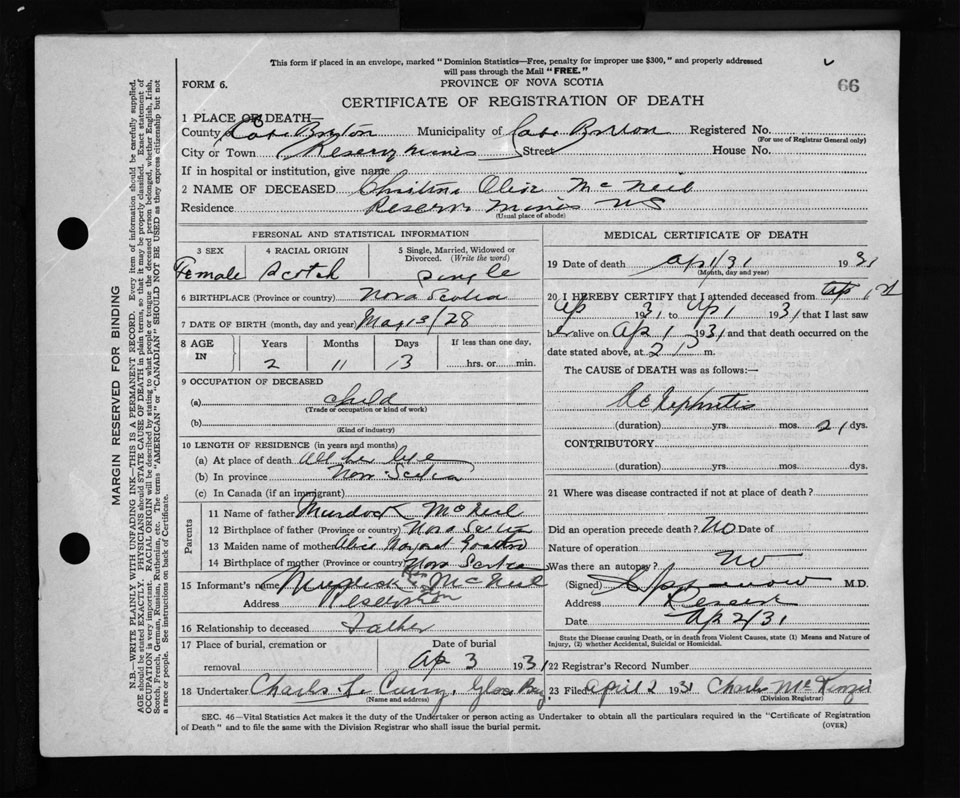 This form if placed in an envelope, marked "Dominion Statistics—Free, penalty for improper use $300," and properly addressed
will pass through the Mail "FREE."
66
FORM 6.
PROVINCE OF NOVA SCOTIA
CERTIFICATE OF REGISTRATION OF DEATH
1 PLACE OF DEATH—
County Cape Breton Municipality of Cape Breton Registered No.
(For use of Registrar General only)
City or Town Reserve Mines Street House No.
If in hospital or institution, give name
2 NAME OF DECEASED Christina Olive McNeil
Residence Reserve Mines NS
(Usual place of abode)
PERSONAL AND STATISTICAL INFORMATION
3 SEX 4 RACIAL ORIGIN 5 Single, Married, Widowed or Divorced. (Write the word)
Female Scotch Single
6 BIRTHPLACE (Province or country) Nova Scotia
7 DATE OF BIRTH (month, day and year) May 13/28
8 AGE IN Years Months Days If less than one day,
2 11 13 hrs. or min.
9 OCCUPATION OF DECEASED
(a) child
(Trade or occupation or kind of work)
(b)
(Kind of industry)
10 LENGTH OF RESIDENCE (in years and months)
(a) At place of death All her life
(b) In province Nova Scotia
(c) In Canada (if an immigrant)
Parents
11 Name of father Murdock McNeil
12 Birthplace of father (Province or country) Nova Scotia
13 Maiden name of mother Alice Margaret
14 Birthplace of mother (Province or country) Nova Scotia
15 Informant's name Murdock McNeil
Address Reserve
16 Relationship to deceased Father
17 Place of burial, cremation or removal Date of burial
Ap 3 1931
18 Undertaker Charles L Curry, Glace Bay
(Name and address)
MEDICAL CERTIFICATE OF DEATH
19 Date of death Ap 1/31 1931
(Month, day and year)
20 I HEREBY CERTIFY that I attended deceased from Ap 1st
Ap 1931 to Ap 1 1931 that I last saw
her alive on Ap 1 1931 and that death occurred on the
date stated above, at 2 P m.
The CAUSE of DEATH was as follows:—
Ac Nephritis
(duration) yrs. mos. 21 dys.
CONTRIBUTORY
(duration) yrs. mos. dys.
21 Where was disease contracted if not at place of death?
Did an operation precede death? NO Date of
Nature of operation
Was there an autopsy? NO
(Signed) M.D.
Address Reserve
Date Ap 2/31
State the Disease causing Death, or in death from Violent Causes, state (1) Means and Nature of
Injury, (2) whether Accidental, Suicidal or Homicidal.
22 Registrar's Record Number
23 Filed April 2 1931 Charles McKinzie
(Division Registrar)
SEC. 46—Vital Statistics Act makes it the duty of the Undertaker or person acting as Undertaker to obtain all the particulars required in the "Certificate of Registration
of Death" and to file the same with the Division Registrar who shall issue the burial permit.
(OVER)
MARGIN RESERVED FOR BINDING
N.B.—WRITE PLAINLY, WITH UNFADING INK—THIS IS A PERMANENT RECORD. Every item of information should be carefully supplied.
AGE should be stated EXACTLY. PHYSICIANS should STATE CAUSE OF DEATH in plain terms, so that it may be properly classified. Exact statement of
OCCUPATION is very important. RACIAL ORIGIN will be described by stating to what people or tongue the deceased person belonged, whether English, Irish,
Scotch, French, German, Russian, Ruthenian, etc. The terms "AMERICAN" or "CANADIAN" SHOULD NOT BE USED as they express citizenship but not
a race or people. See instructions on back of Certificate.